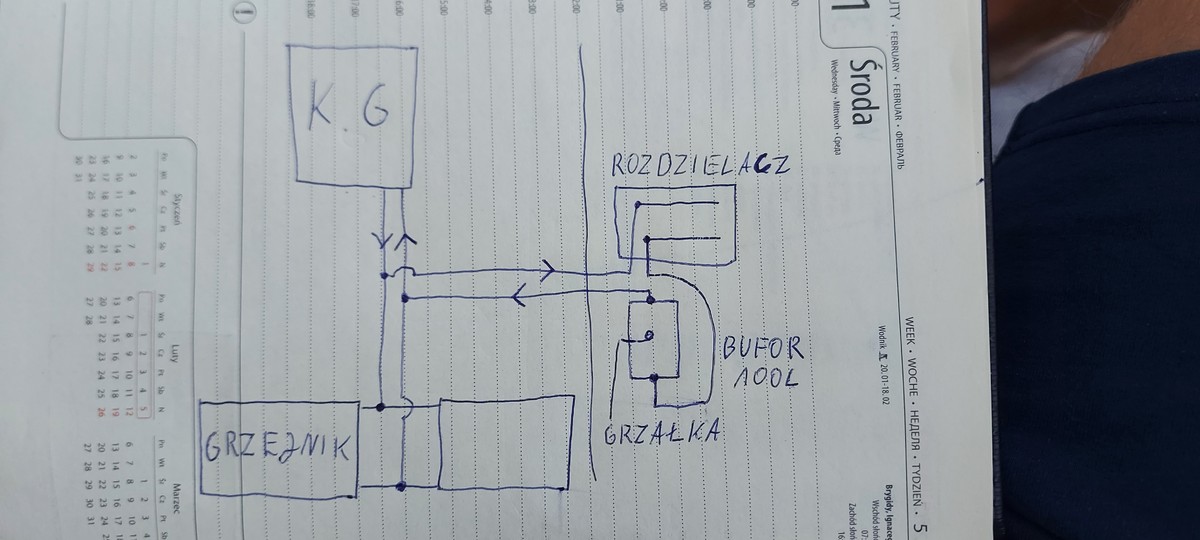 K.G
ROZDZIELACZ
BUFOR
100L
GRZAŁKA
GRZEJNIK
UTY • FEBRUARY • FEBRUAR • ФЕВРАЛЬ
1
Środa
Wednesday • Mittwoch • Среда
WEEK • WOCHE • НЕДЕЛЯ • TYDZIEŃ • 5
Wodnik 20.01-18.02
Brygidy, Ignaceg
Wschód słoń
07:
Zachód słoń
16
Styczeń
Pn Wt Śr Cz Pt Sb N
1
2 3 4 5 6 7 8
9 10 11 12 13 14 15
16 17 18 19 20 21 22
23 24 25 26 27 28 29
30 31
Luty
Pn Wt Śr Cz Pt Sb N
1 2 3 4 5
6 7 8 9 10 11 12
13 14 15 16 17 18 19
20 21 22 23 24 25 26
27 28
Marzec
Pn Wt Śr Cz Pt Sb
1 2 3 4
6 7 8 9 10 11
13 14 15 16 17 18
20 21 22 23 24 25
27 28 29 30 31